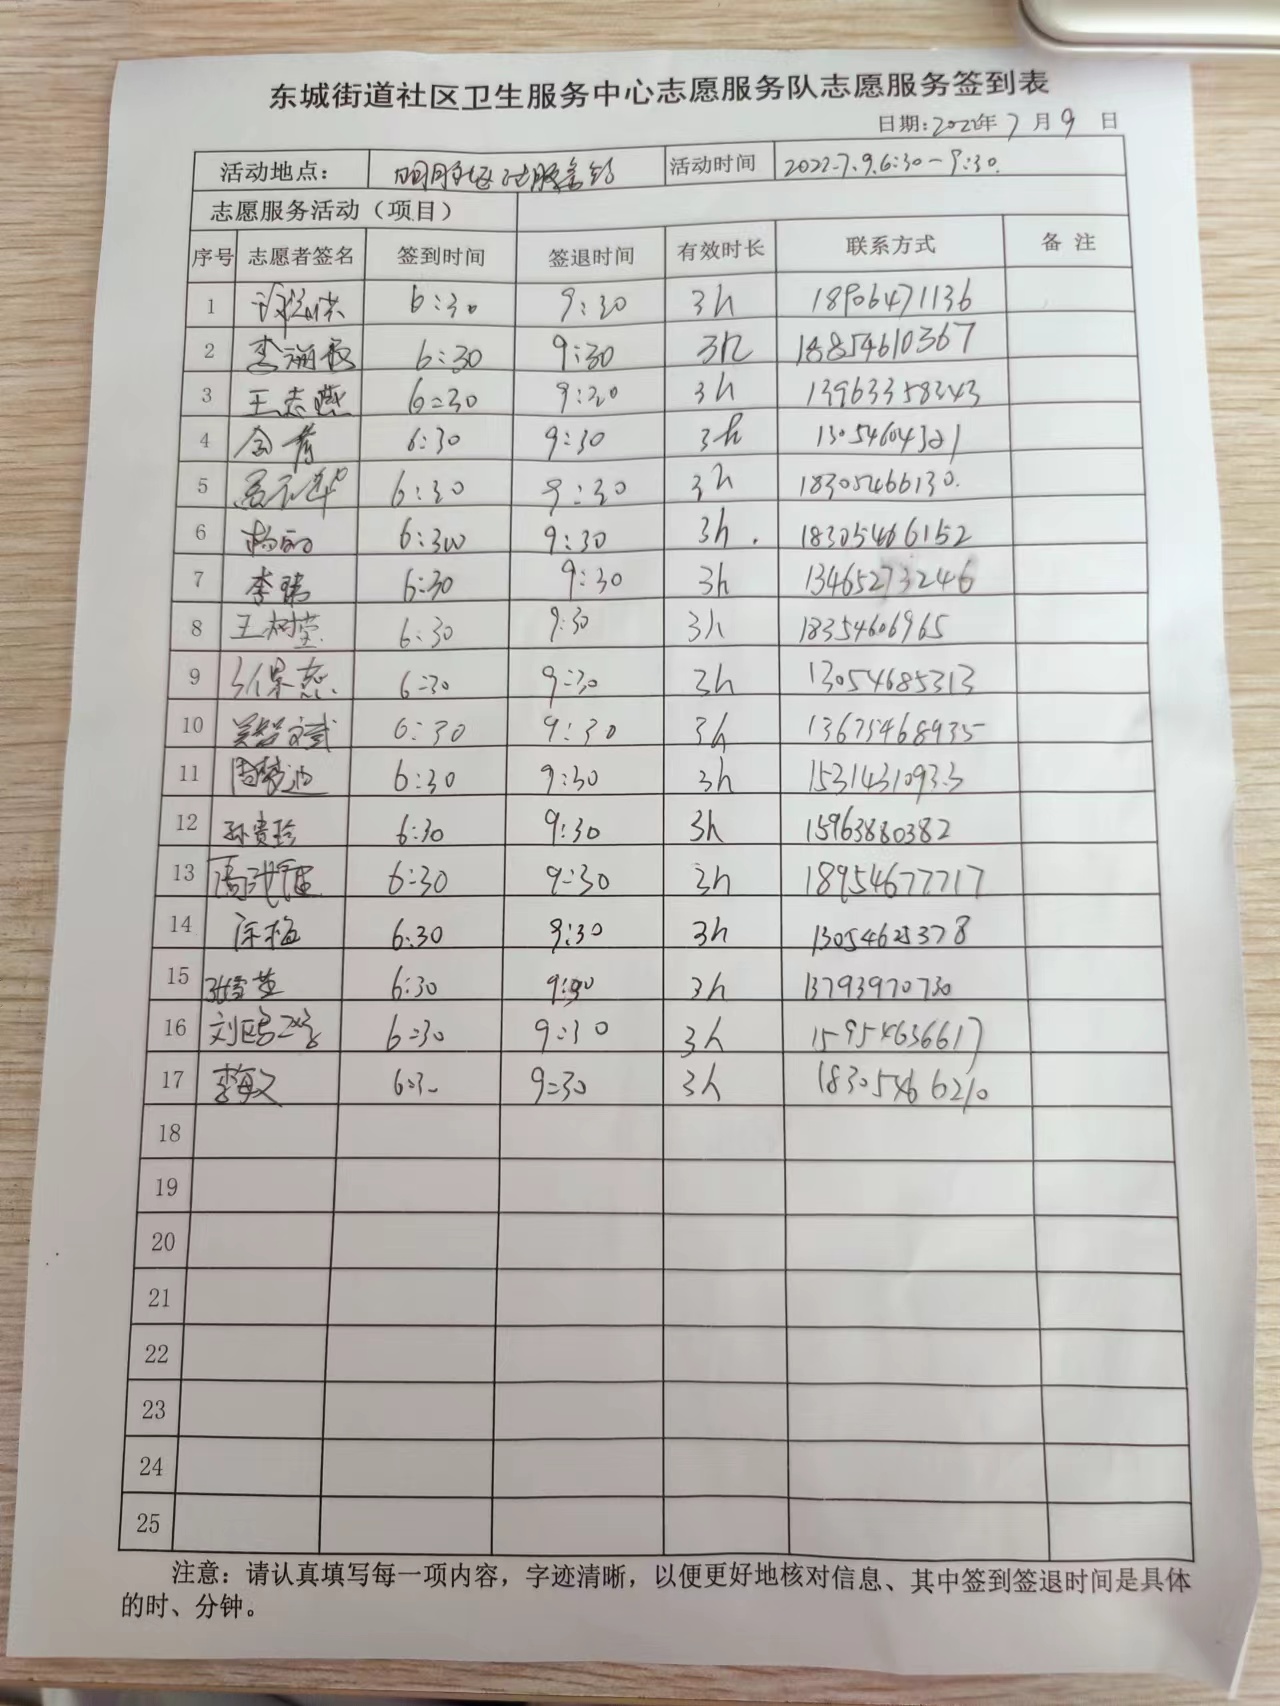 东城街道社区卫生服务中心志愿服务队志愿服务签到表
日期:2022年7月9日
活动地点: 活动时间 2022.7.9.6:30-9:30.
志愿服务活动（项目）
序号 志愿者签名 签到时间 签退时间 有效时长 联系方式 备 注
1 6:30 9:30 3h 18906471136
2 6:30 9:30 3h 18854610367
3 王志燕 6:30 9:30 3h 13963358243
4 6:30 9:30 3h 13054604321
5 6:30 9:30 3h 18305466130.
6 杨丽 6:30 9:30 3h. 18305466152
7 李瑞 6:30 9:30 3h 13465273246
8 王树莹 6:30 9:30 3h 18354606965
9 6:30 9:30 3h 13054685313
10 6:30 9:30 3h 13675468935
11 周梦迪 6:30 9:30 3h 15314310933
12 孙贵珍 6:30 9:30 3h 15963880382
13 6:30 9:30 3h 18954677717
14 徐梅 6:30 9:30 3h 13054625378
15 6:30 9:30 3h 13793970730
16 6:30 9:30 3h 15954636617
17 李敏 6:30 9:30 3h 18305466210
18
19
20
21
22
23
24
25
注意：请认真填写每一项内容，字迹清晰，以便更好地核对信息、其中签到签退时间是具体
的时、分钟。